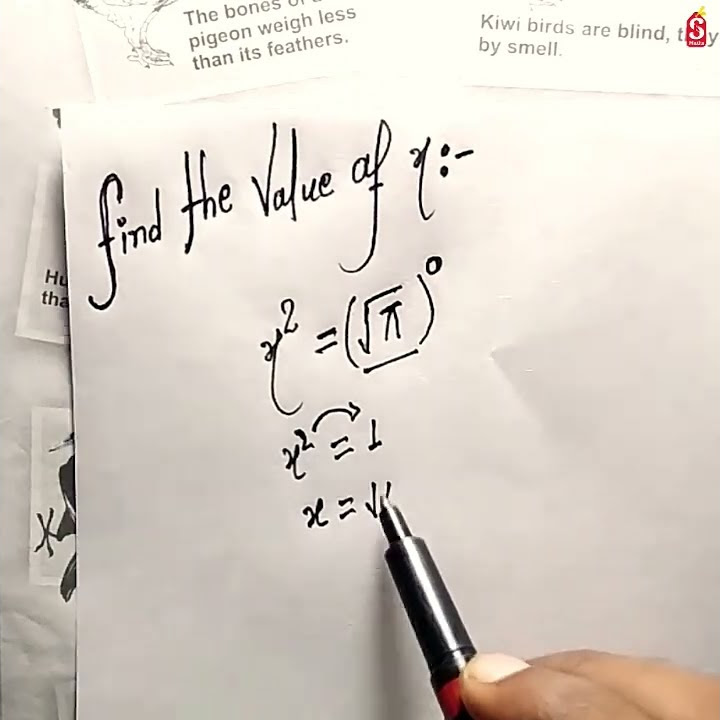 The bones of
pigeon weigh less
than its feathers.
Kiwi birds are blind,
by smell.
S
Maths
find the Value of x:-
x² = (√π)⁰
Hu
tha
x² = 1
x = √